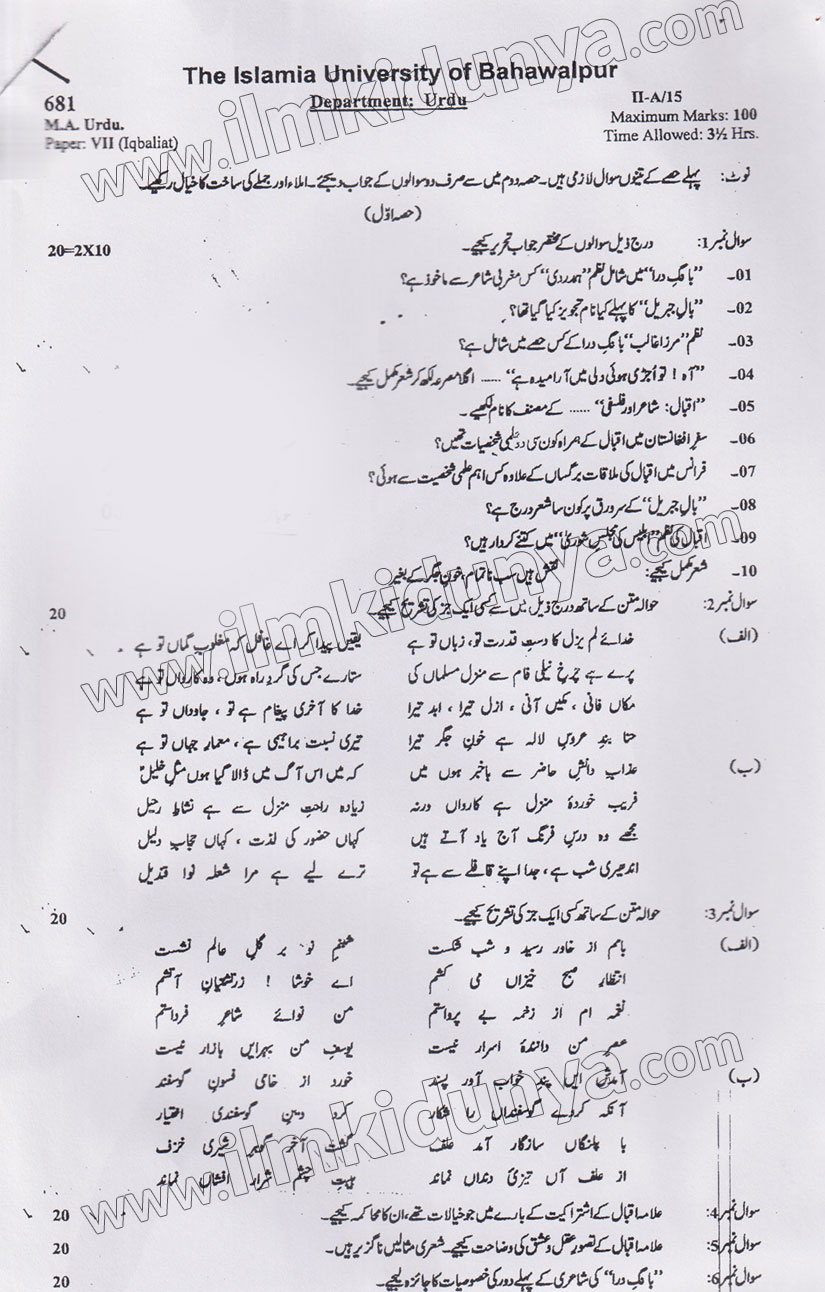 The Islamia University of Bahawalpur
681 Department: Urdu II-A/15
M.A. Urdu. Maximum Marks: 100
Paper: VII (Iqbaliat) Time Allowed: 3½ Hrs.
نوٹ: پہلے حصے کے تینوں سوال لازمی ہیں۔ حصہ دوم میں سے صرف دو سوالوں کے جواب دیجئے۔ املاء اور جملے کی ساخت کا خیال رکھیے۔
(حصہ اوّل)
سوال نمبر 1: درج ذیل سوالوں کے مختصر جواب تحریر کیجیے۔ 20=2X10
01- "بانگِ درا" میں شامل نظم "ہمدردی" کس مغربی شاعر سے ماخوذ ہے؟
02- "بالِ جبریل" کا پہلے کیا نام تجویز کیا گیا تھا؟
03- نظم "مرزا غالب" بانگِ درا کے کس حصے میں شامل ہے؟
04- "آہ! تو اجڑی ہوئی دلی میں آرامیدہ ہے" ...... اگلا مصرعہ لکھ کر شعر مکمل کیجیے۔
05- "اقبال: شاعر اور فلسفی" ...... کے مصنف کا نام لکھیے۔
06- سفرِ افغانستان میں اقبال کے ہمراہ کون سی دو علمی شخصیات تھیں؟
07- فرانس میں اقبال کی ملاقات برگساں کے علاوہ کس اہم علمی شخصیت سے ہوئی؟
08- "بالِ جبریل" کے سرورق پر کون سا شعر درج ہے؟
09- اقبال کی نظم "ابلیس کی مجلسِ شوریٰ" میں کتنے کردار ہیں؟
10- شعر مکمل کیجیے: نقش ہیں سب ناتمام، خونِ جگر کے بغیر
سوال نمبر 2: حوالہ متن کے ساتھ درج ذیل میں سے کسی ایک جز کی تشریح کیجیے۔ 20
(الف) خدائے لم یزل کا دستِ قدرت تو، زباں تو ہے یقیں پیدا کر اے غافل کہ مغلوبِ گماں تو ہے
پرے ہے چرخِ نیلی فام سے منزل مسلماں کی ستارے جس کی گردِ راہ ہوں، وہ کارواں تو ہے
مکاں فانی، مکیں آنی، ازل تیرا، ابد تیرا خدا کا آخری پیغام ہے تو، جاوداں تو ہے
حنا بندِ عروسِ لالہ ہے خونِ جگر تیرا تیری نسبت براہیمی ہے، معمارِ جہاں تو ہے
(ب) عذابِ دانشِ حاضر سے باخبر ہوں میں کہ میں اس آگ میں ڈالا گیا ہوں مثلِ خلیلؑ
فریب خوردۂ منزل ہے کارواں ورنہ زیادہ راحتِ منزل سے ہے نشاطِ رحیل
مجھے وہ درسِ فرنگ آج یاد آتے ہیں کہاں حضور کی لذت، کہاں حجابِ دلیل
اندھیری شب ہے، جدا اپنے قافلے سے ہے تو ترے لیے ہے مرا شعلہ نوا قندیل
سوال نمبر 3: حوالہ متن کے ساتھ کسی ایک جز کی تشریح کیجیے۔ 20
(الف) بامم از خاور رسید و شب شکست شبنمِ نو بر گلِ عالم نشست
انتظارِ صبح خیزاں می کشم اے خوشا! زرتشتیانِ آتشم
نغمہ ام از زخمہ بے پرواستم من نوائے شاعرِ فرداستم
عصرِ من دانندۂ اسرار نیست یوسفِ من بہر ایں بازار نیست
(ب) آمدش ایں پندِ خواب آور پسند خورد از خامی فسونِ گوسفند
آنکہ کردے گوسفنداں را شکار کرد دینِ گوسفندی اختیار
با پلنگاں سازگار آمد علف گشت آخر گوہرِ شیری خزف
از علف آں تیزیٔ دنداں نماند ہیبتِ چشمِ شرار افشاں نماند
سوال نمبر 4: علامہ اقبال کے اشتراکیت کے بارے میں جو خیالات تھے، ان کا محاکمہ کیجیے۔ 20
سوال نمبر 5: علامہ اقبال کے تصورِ عقل و عشق کی وضاحت کیجیے۔ شعری مثالیں ناگزیر ہیں۔ 20
سوال نمبر 6: "بانگِ درا" کی شاعری کے پہلے دور کی خصوصیات کا جائزہ لیجیے۔ 20
www.ilmkidunya.com
www.ilmkidunya.com
www.ilmkidunya.com